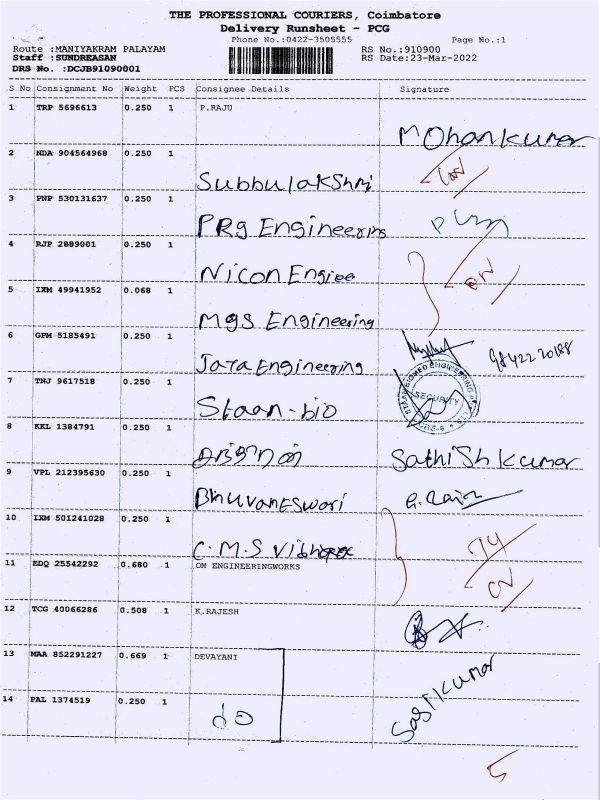 THE PROFESSIONAL COURIERS, Coimbatore
Delivery Runsheet - PCG
Phone No.:0422-3505555 Page No.:1
Route :MANIYAKRAM PALAYAM RS No.:910900
Staff :SUNDREASAN RS Date:23-Mar-2022
DRS No. :DCJB91090001
S No Consignment No Weight PCS Consignee Details Signature
1 TRP 5696613 0.250 1 P.RAJU
Mohankumar
2 NDA 904564968 0.250 1
Subbulakshmi
3 PNP 530131637 0.250 1
PRg Engineering
4 RJP 2889001 0.250 1
Nicon Engiee
5 IXM 49941952 0.068 1
Mgs Engineering
6 GPM 5185491 0.250 1 9842220188
Jara Engineering
7 TNJ 9617518 0.250 1 SECURITY
Staan-bio
8 KKL 1384791 0.250 1
Sathish kumar
9 VPL 212395630 0.250 1
Bhuvaneswari
10 IXM 501241028 0.250 1
C.M.S
11 EDQ 25542292 0.680 1 OM ENGINEERINGWORKS
12 TCG 40066286 0.508 1 K.RAJESH
13 MAA 852291227 0.669 1 DEVAYANI
Sasikumar
14 PAL 1374519 0.250 1
do